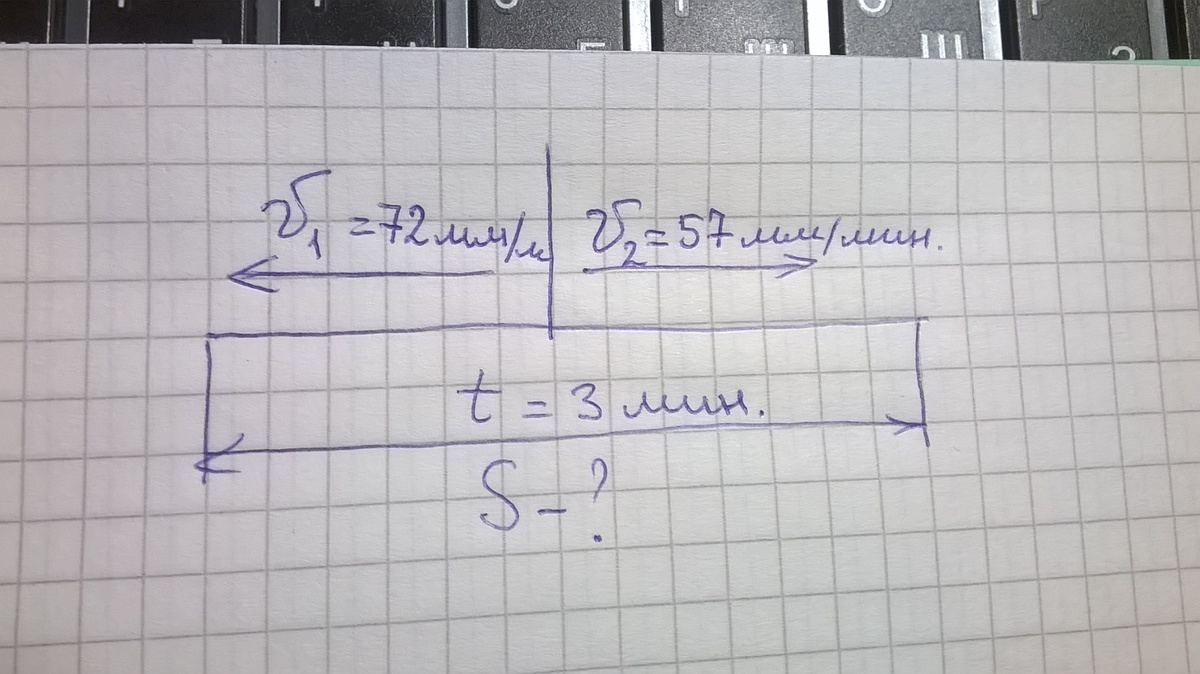 v₁ = 72 мм/м v₂ = 57 мм/мин.
t = 3 мин.
S - ?